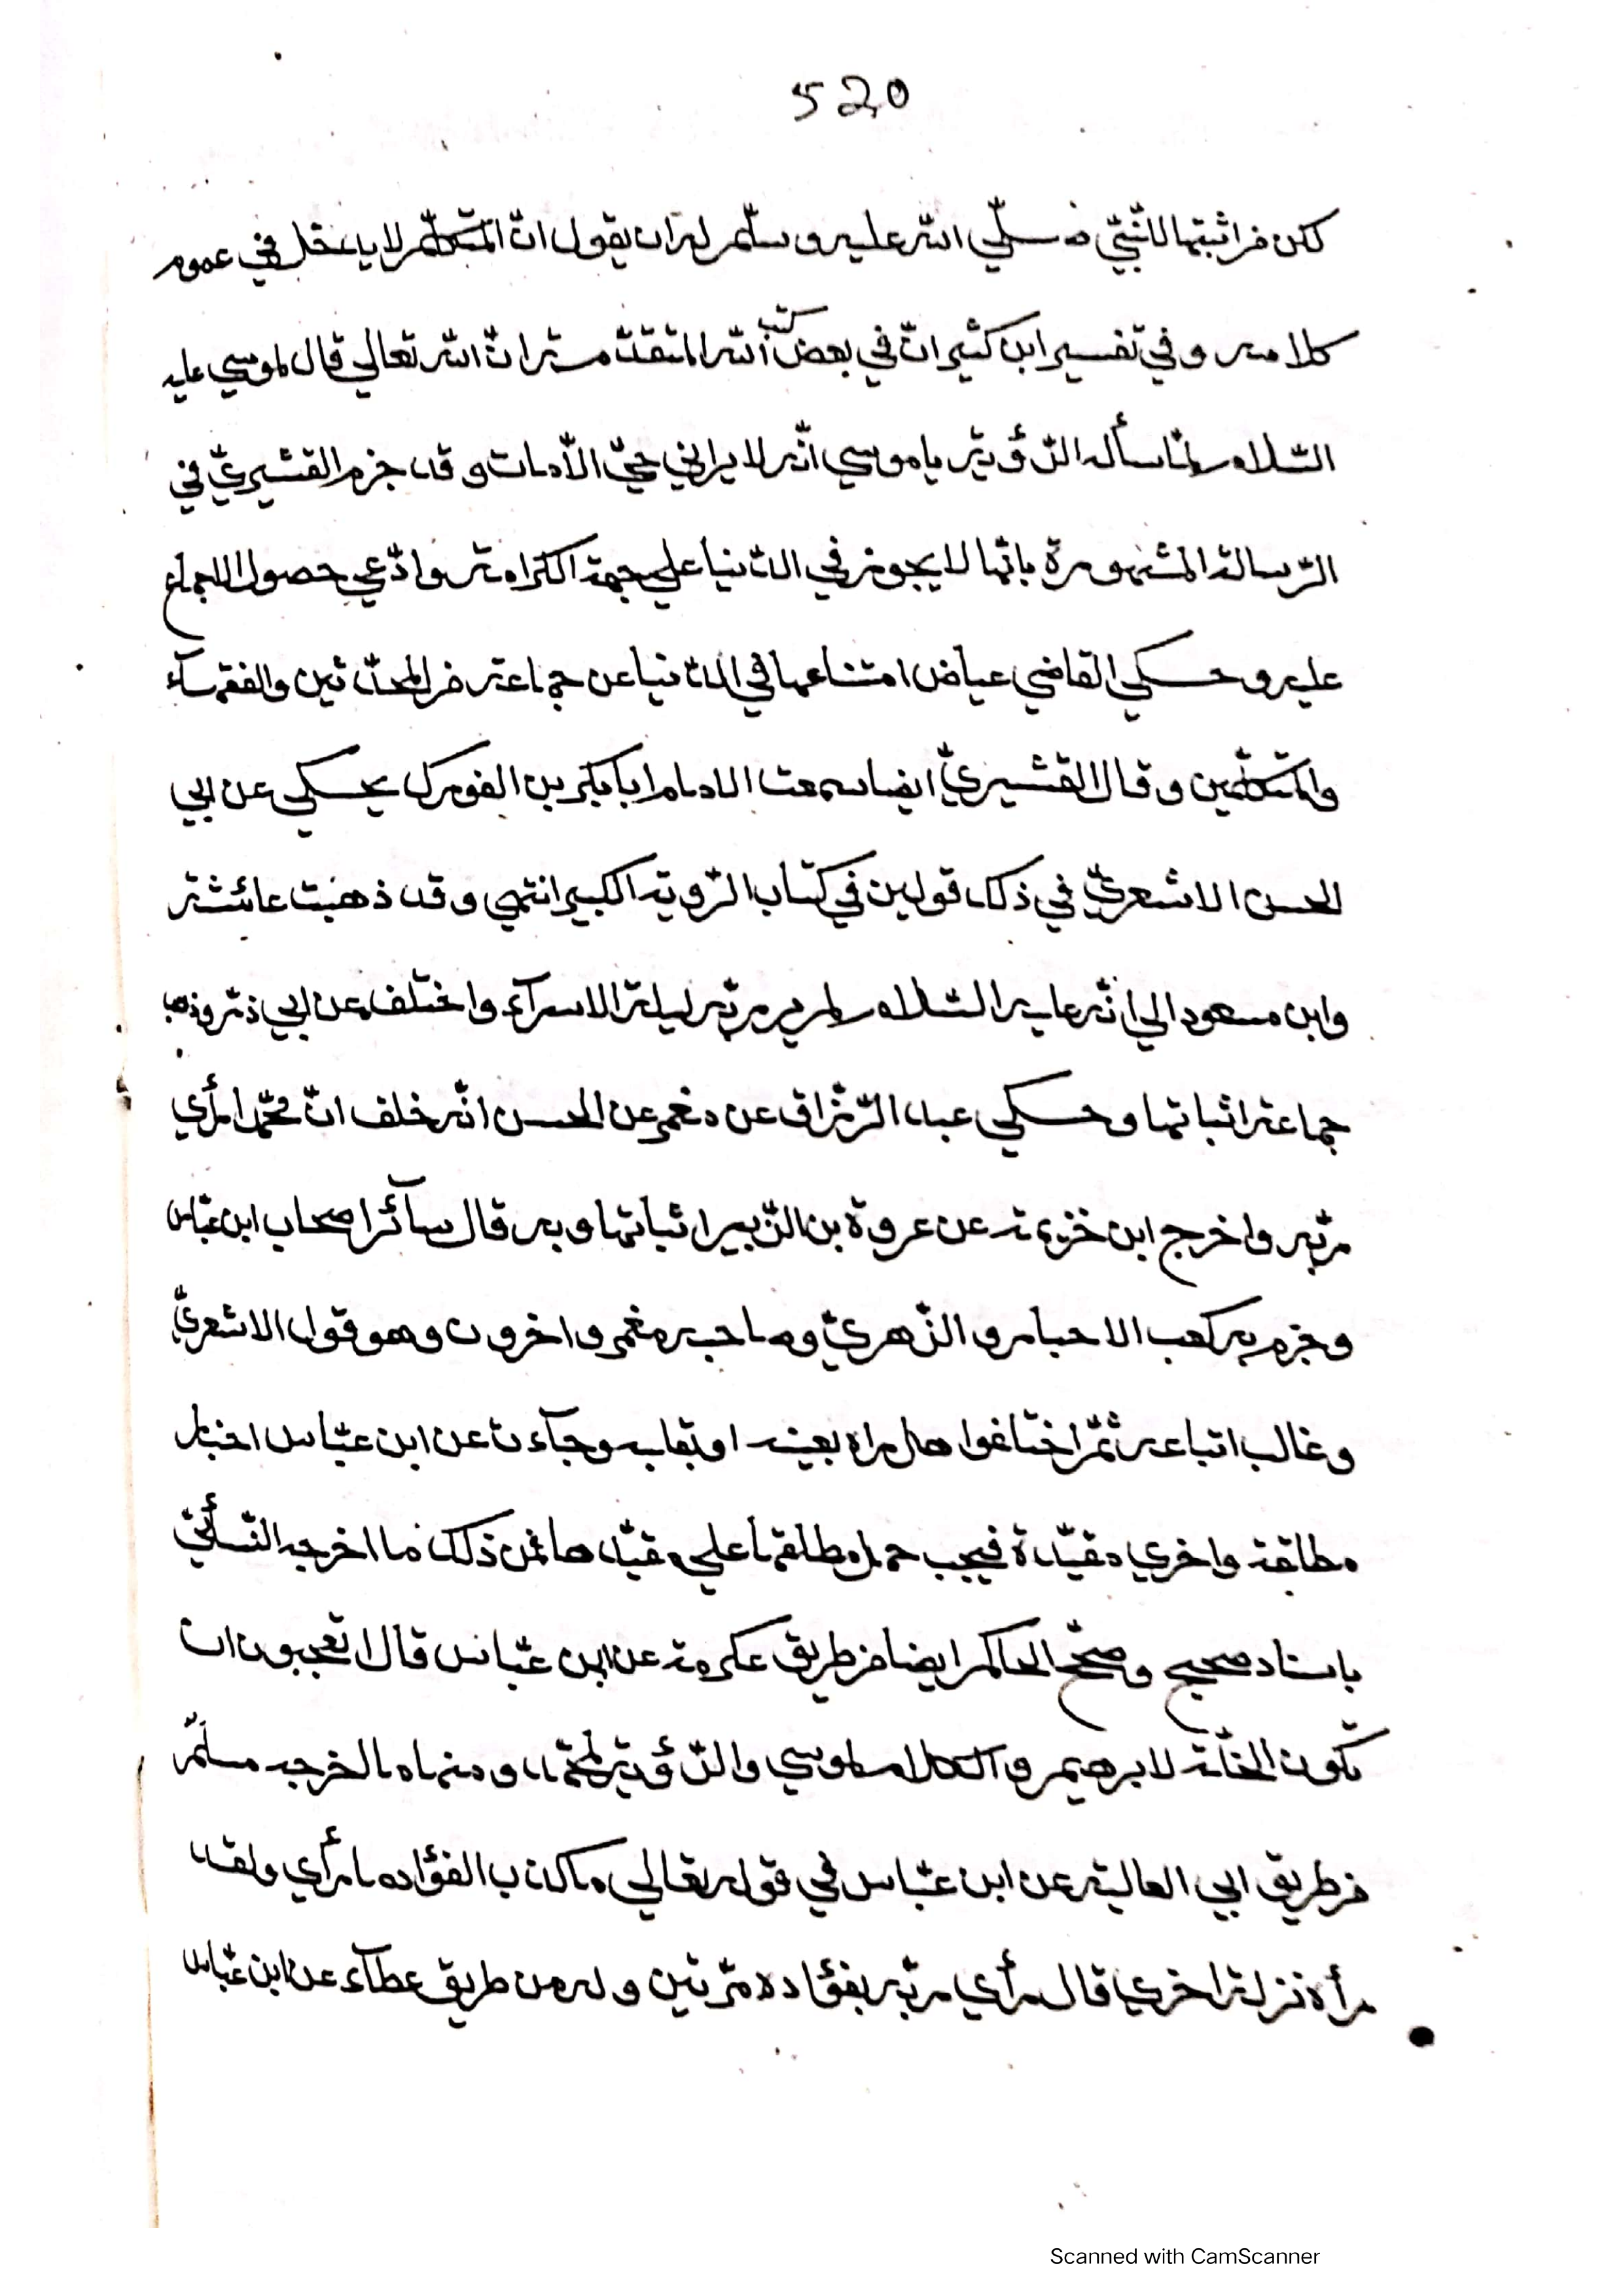 520
لكن من اثبتها للنّبيّ صلّي الله عليه وسلّم له ان يقول انّ المتكلّم لا يدخل في عموم
كلامه وفي تفسير ابن كثير انّ في بعض كتب الله المتقدّمة انّ الله تعالي قال لموسي عليه
السّلام لمّا سأله الرّؤية ياموسي انّه لا يراني حيّ الّامات وقد جزم القشيريّ في
الرّسالة المشهورة بانّها لا يجوز في الدّنيا علي جهة الكرامة وادّعي حصول الاجماع
عليه وحكي القاضي عياض امتناعها في الدّنيا عن جماعة من المحدّثين والفقهآء
والمتكلّمين وقال القشيريّ ايضا سمعت الامام ابا بكر بن الفورك يحكي عن ابي
الحسن الاشعريّ في ذلك قولين في كتاب الرّوية الكبير انتهي وقد ذهبت عائشة
وابن مسعود الي انّه عليه السّلام لم ير ربّه ليلة الاسرآء واختلف عن ابي ذرّ وذهب
جماعة اثباتها وحكي عبد الرّزاق عن معمر عن الحسن انّه خلف انّ محمّدا رأي
ربّه واخرج ابن خزيمة عن عروة بن الزّبير اثباتها وبه قال سآئر اصحاب ابن عبّاس
وجزم به كعب الاحبار والزّهريّ وصاحبه معمر واخرون وهو قول الاشعريّ
وغالب اتباعه ثمّ اختلفوا هل راه بعينه او بقلبه وجآءت عن ابن عبّاس اخبار
مطلقة واخري مقيّدة فيجب حمل مطلقها علي مقيّدها فمن ذلك ما اخرجه النّسائيّ
باسناد صحيح وصحّح الحاكم ايضا من طريق عكرمة عن ابن عبّاس قال اتعجبون ان
تكون الخلّة لابرهيم والكلام لموسي والرّؤية لمحمّد ومنها ما اخرجه مسلم
من طريق ابي العالية عن ابن عبّاس في قوله تعالي ما كذب الفؤاد ما رأي ولقد
رأه نزلة اخري قال رأي ربّه بفؤاده مرّتين وله من طريق عطآء عن ابن عبّاس
Scanned with CamScanner